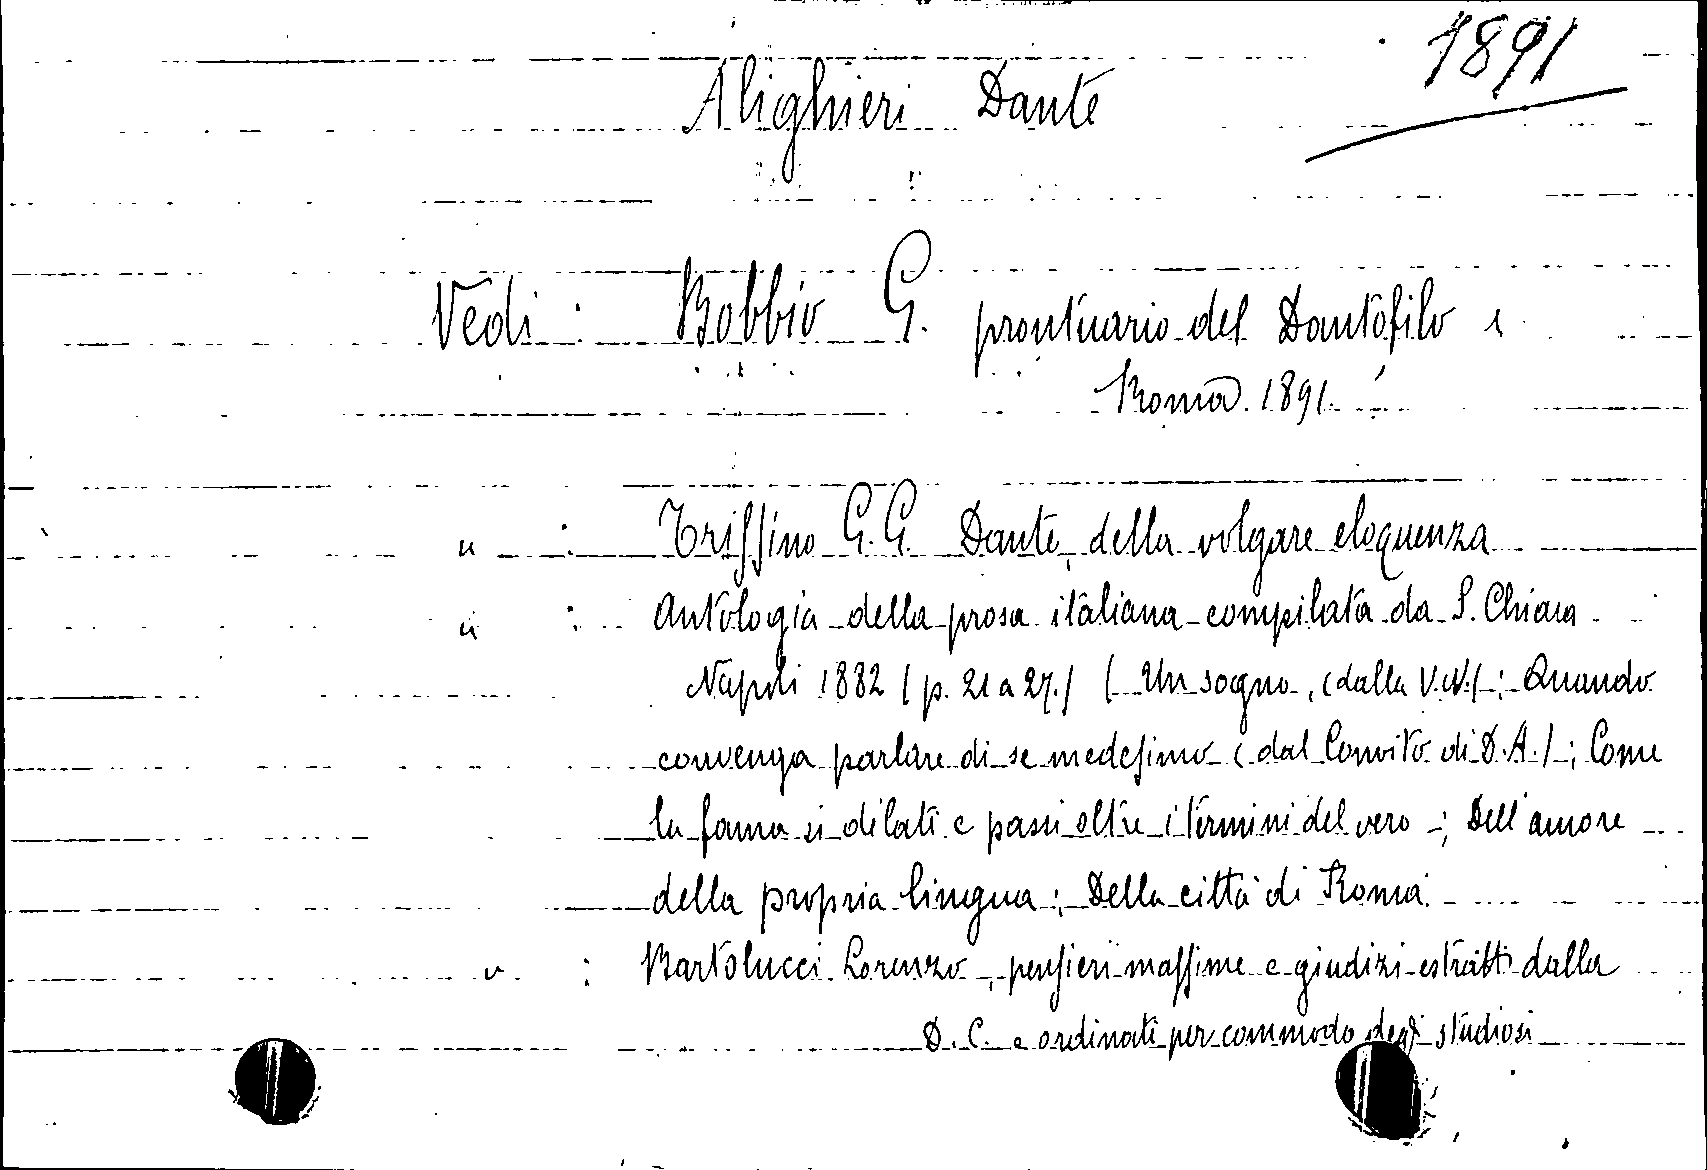 1891
Alighieri Dante
Vedi : Bobbio G. prontuario del Dantofilo
Roma 1891.
" : Trissino G.G. Dante, della volgare eloquenza
" : Antologia della prosa italiana compilata da S. Chiara
Napoli 1882 (p. 21 a 27.) ( Un sogno, (dalla V.N.) ; Quando
convenga parlare di se medesimo (dal Convito di D.A.) ; Come
la fama si dilati e passi oltre i termini del vero ; Dell'amore
della propria lingua ; Della città di Roma
" : Bartolucci Lorenzo, pensieri massime e giudizi estratti dalla
D. C. e ordinati per commodo degl' studiosi